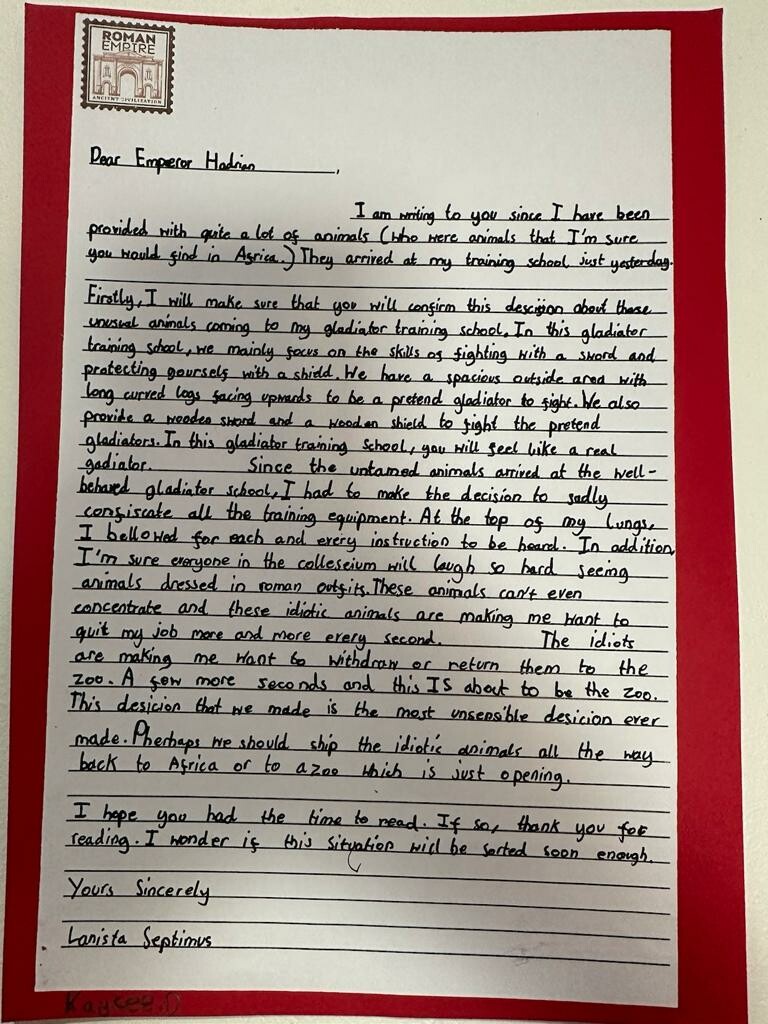 ROMAN
EMPIRE
ANCIENT CIVILIZATION
Dear Emperor Hadrian,
I am writing to you since I have been
provided with quite a lot of animals (who were animals that I'm sure
you would find in Africa.) They arrived at my training school just yesterday.
Firstly, I will make sure that you will confirm this descision about these
unusual animals coming to my gladiator training school. In this gladiator
training school, we mainly focus on the skills of fighting with a sword and
protecting yourself with a shield. We have a spacious outside area with
long curved logs facing upwards to be a pretend gladiator to fight. We also
provide a wooden sword and a wooden shield to fight the pretend
gladiators. In this gladiator training school, you will feel like a real
gadiator. Since the untamed animals arrived at the well-
behaved gladiator school, I had to make the decision to sadly
confiscate all the training equipment. At the top of my lungs,
I bellowed for each and every instruction to be heard. In addition,
I'm sure everyone in the colleseium will laugh so hard seeing
animals dressed in roman outfits. These animals can't even
concentrate and these idiotic animals are making me want to
quit my job more and more every second. The idiots
are making me want to withdraw or return them to the
zoo. A few more seconds and this IS about to be the zoo.
This desicion that we made is the most unsensible desicion ever
made. Pherhaps we should ship the idiotic animals all the way
back to Africa or to a zoo which is just opening.
I hope you had the time to read. If so, thank you for
reading. I wonder if this situation will be sorted soon enough.
Yours Sincerely
Lanista Septimus
Kaycee.D